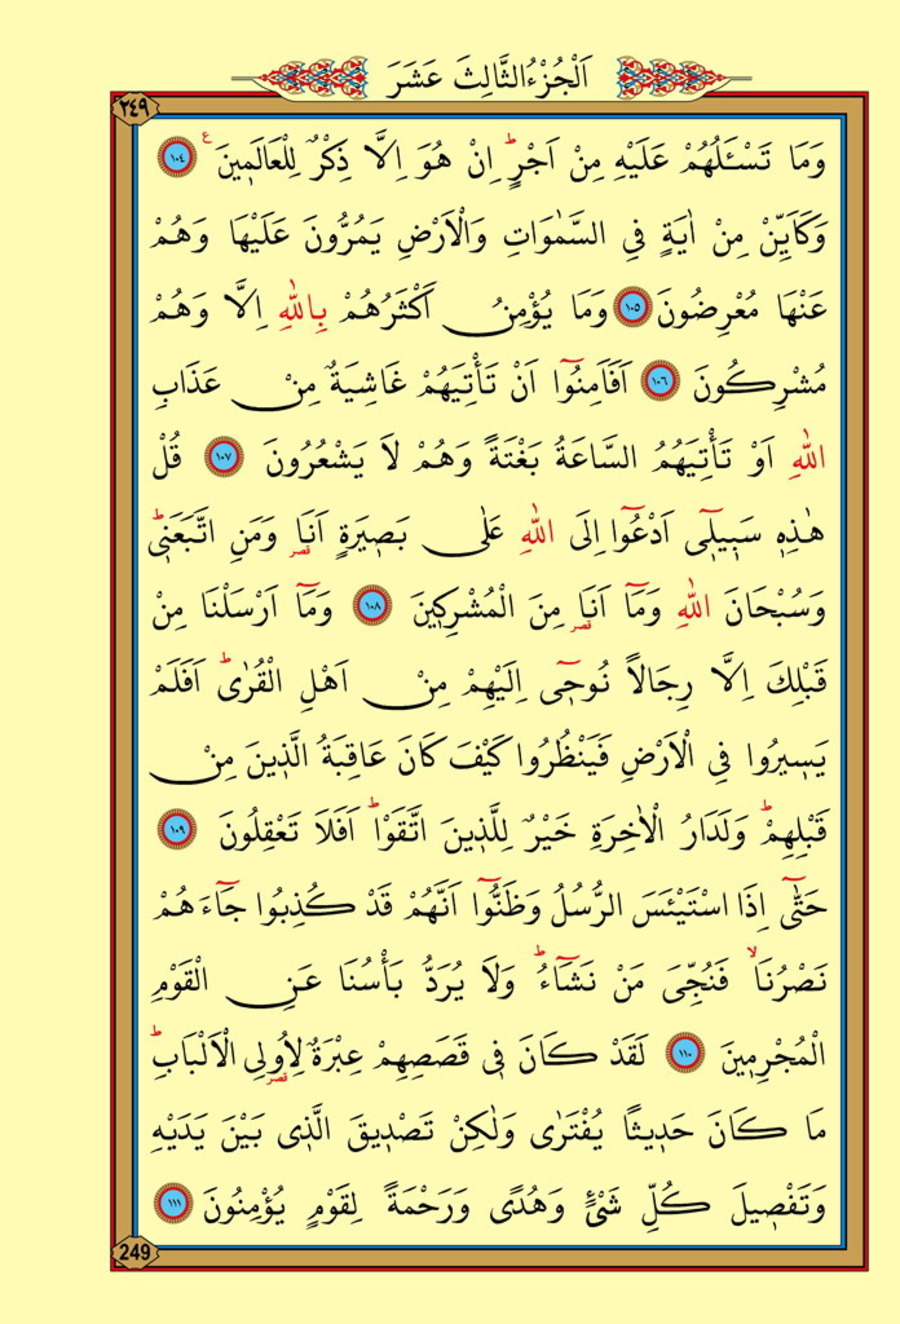 اَلْجُزْءُالثَّالِثَ عَشَرَ
٢٤٩
وَمَا تَسْـَٔلُهُمْ عَلَيْهِ مِنْ اَجْرٍۜ اِنْ هُوَ اِلَّا ذِكْرٌ لِلْعَالَم۪ينَ ع ١٠٤
وَكَاَيِّنْ مِنْ اٰيَةٍ فِي السَّمٰوَاتِ وَالْاَرْضِ يَمُرُّونَ عَلَيْهَا وَهُمْ
عَنْهَا مُعْرِضُونَ ١٠٥ وَمَا يُؤْمِنُ اَكْثَرُهُمْ بِاللّٰهِ اِلَّا وَهُمْ
مُشْرِكُونَ ١٠٦ اَفَاَمِنُٓوا اَنْ تَأْتِيَهُمْ غَاشِيَةٌ مِنْ عَذَابِ
اللّٰهِ اَوْ تَأْتِيَهُمُ السَّاعَةُ بَغْتَةً وَهُمْ لَا يَشْعُرُونَ ١٠٧ قُلْ
هٰذِه۪ سَب۪يل۪ٓي اَدْعُٓوا اِلَى اللّٰهِ عَلٰى بَص۪يرَةٍ اَنَا۬ قصر وَمَنِ اتَّبَعَن۪يۜ
وَسُبْحَانَ اللّٰهِ وَمَٓا اَنَا۬ قصر مِنَ الْمُشْرِك۪ينَ ١٠٨ وَمَٓا اَرْسَلْنَا مِنْ
قَبْلِكَ اِلَّا رِجَالًا نُوح۪ٓي اِلَيْهِمْ مِنْ اَهْلِ الْقُرٰىۜ اَفَلَمْ
يَس۪يرُوا فِي الْاَرْضِ فَيَنْظُرُوا كَيْفَ كَانَ عَاقِبَةُ الَّذ۪ينَ مِنْ
قَبْلِهِمْۜ وَلَدَارُ الْاٰخِرَةِ خَيْرٌ لِلَّذ۪ينَ اتَّقَوْاۜ اَفَلَا تَعْقِلُونَ ١٠٩
حَتّٰٓى اِذَا اسْتَيْـَٔسَ الرُّسُلُ وَظَنُّٓوا اَنَّهُمْ قَدْ كُذِبُوا جَٓاءَهُمْ
نَصْرُنَاۙ فَنُجِّيَ مَنْ نَشَٓاءُۜ وَلَا يُرَدُّ بَأْسُنَا عَنِ الْقَوْمِ
الْمُجْرِم۪ينَ ١١٠ لَقَدْ كَانَ ف۪ي قَصَصِهِمْ عِبْرَةٌ لِاُو۬لِي قصر الْاَلْبَابِۜ
مَا كَانَ حَد۪يثًا يُفْتَرٰى وَلٰكِنْ تَصْد۪يقَ الَّذ۪ي بَيْنَ يَدَيْهِ
وَتَفْص۪يلَ كُلِّ شَيْءٍ وَهُدًى وَرَحْمَةً لِقَوْمٍ يُؤْمِنُونَ ١١١
249